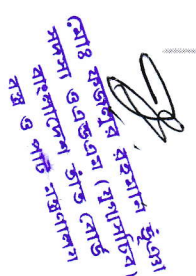 মোঃ রহমান ভূঁঞা
সদস্য (যুগ্মসচিব)
বাংলাদেশ তাঁত বোর্ড
বস্ত্র ও পাট মন্ত্রণালয়